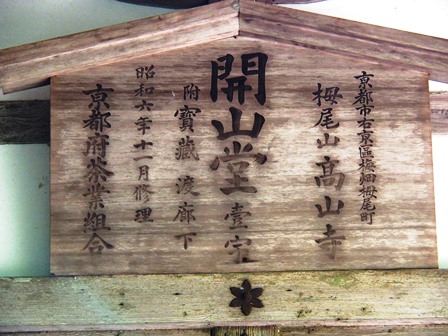 京都市右京區梅畑栂尾町
栂尾山高山寺
開山堂壹宇
附寶藏渡廊下
昭和六年十一月修理
京都府茶業組合